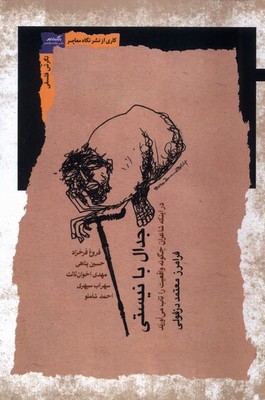 کاری از نشر نگاه معاصر
نگرش فلسفی
جدال با نیستی
در اینکه شاعران چگونه واقعیت را تاب می‌آورند
فرامرز معتمد دزفولی
فروغ فرخزاد
حسین پناهی
مهدی اخوان ثالث
سهراب سپهری
احمد شاملو